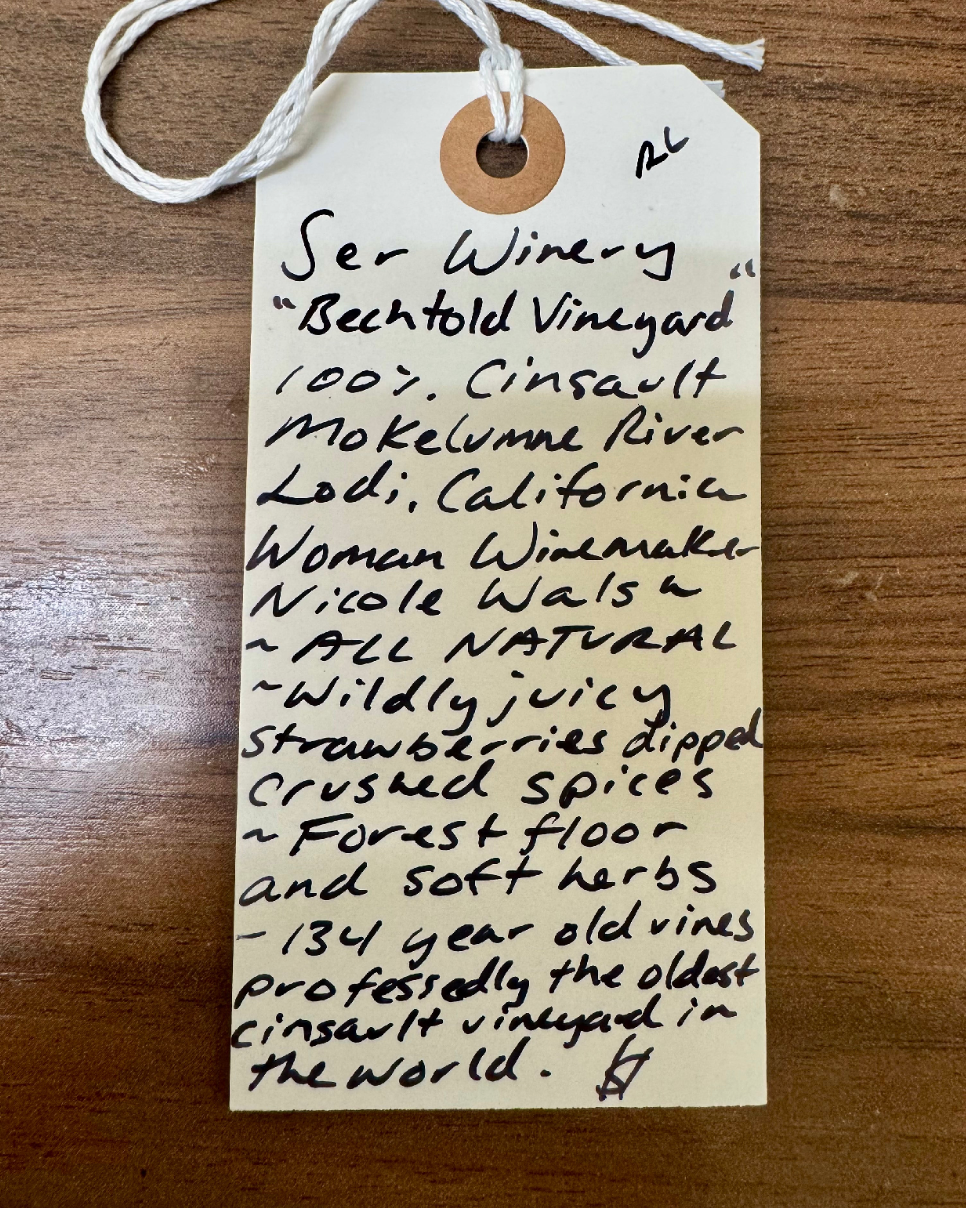 Ser Winery
"Bechtold Vineyard"
100% Cinsault
Mokelumne River
Lodi, California
Woman Winemaker
Nicole Walsh
~ ALL NATURAL
~ Wildly juicy
strawberries dipped
crushed spices
~ Forest floor
and soft herbs
- 134 year old vines
professedly the oldest
cinsault vineyard in
the world.